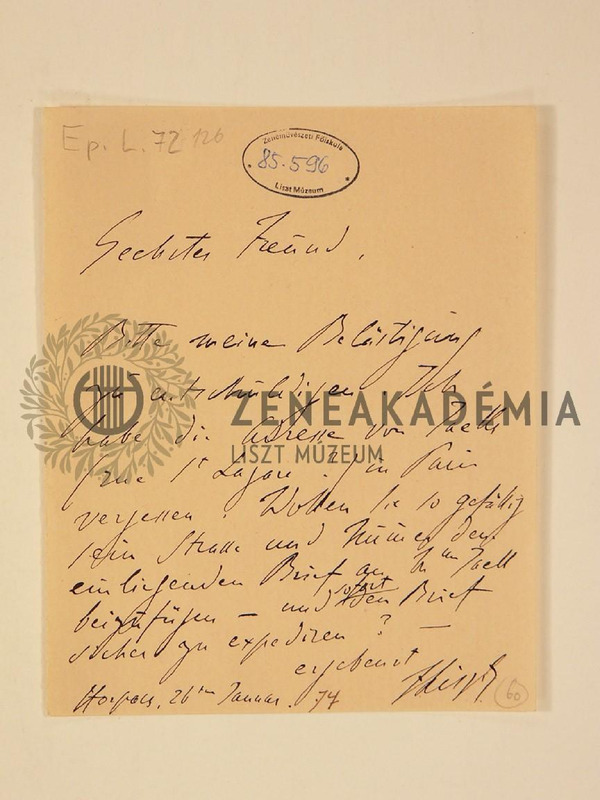 Ep. L. 72: 126
Zeneművészeti Főiskola
85.596
Liszt Múzeum
Geehrter Freund,
Bitte meine Belästigung
zu entschuldigen. Ich
habe die Adresse von Jaell
(rue St Lazare ?) in Paris
vergessen. Wollen Sie so gefällig
sein Strasse und Numer dem
einliegenden Brief an Hrn Jaell
beizufügen – und sofort den Brief
sicher zu expediren? –
ergebenst
26ten Januar, 74
FLiszt
60
ZENEAKADÉMIA
LISZT MÚZEUM